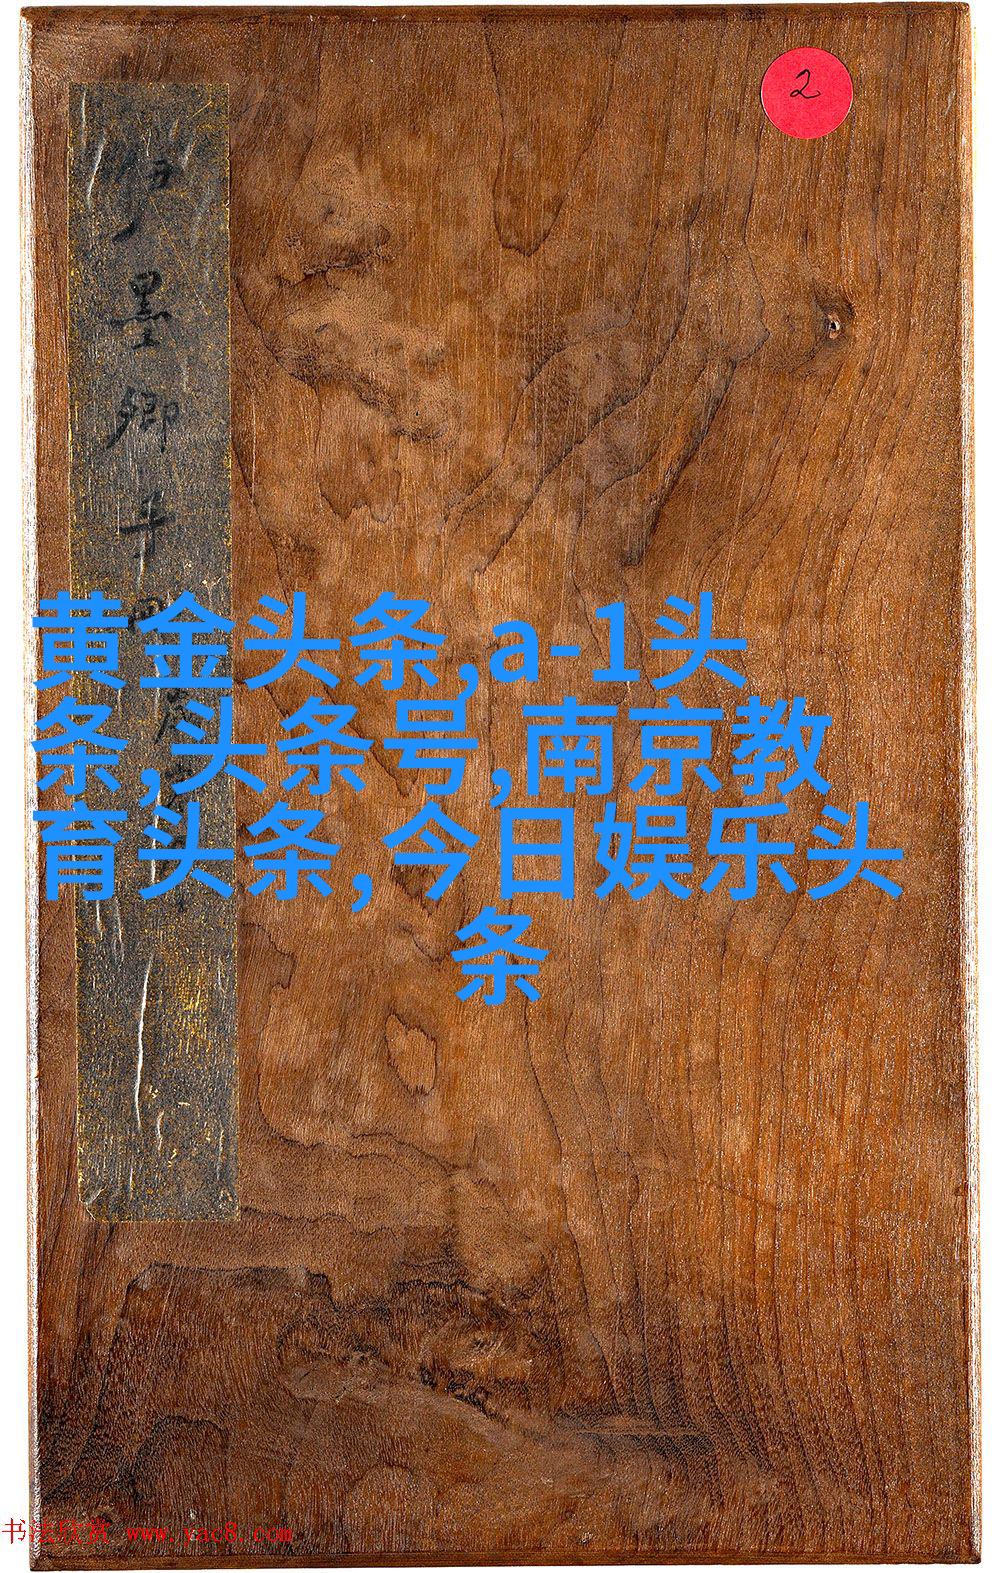 2
墨卿手
黄金头条,a-1头
条,头条号,南京教
育头条,今日娱乐头
条
书法欣赏 www.yac8.com